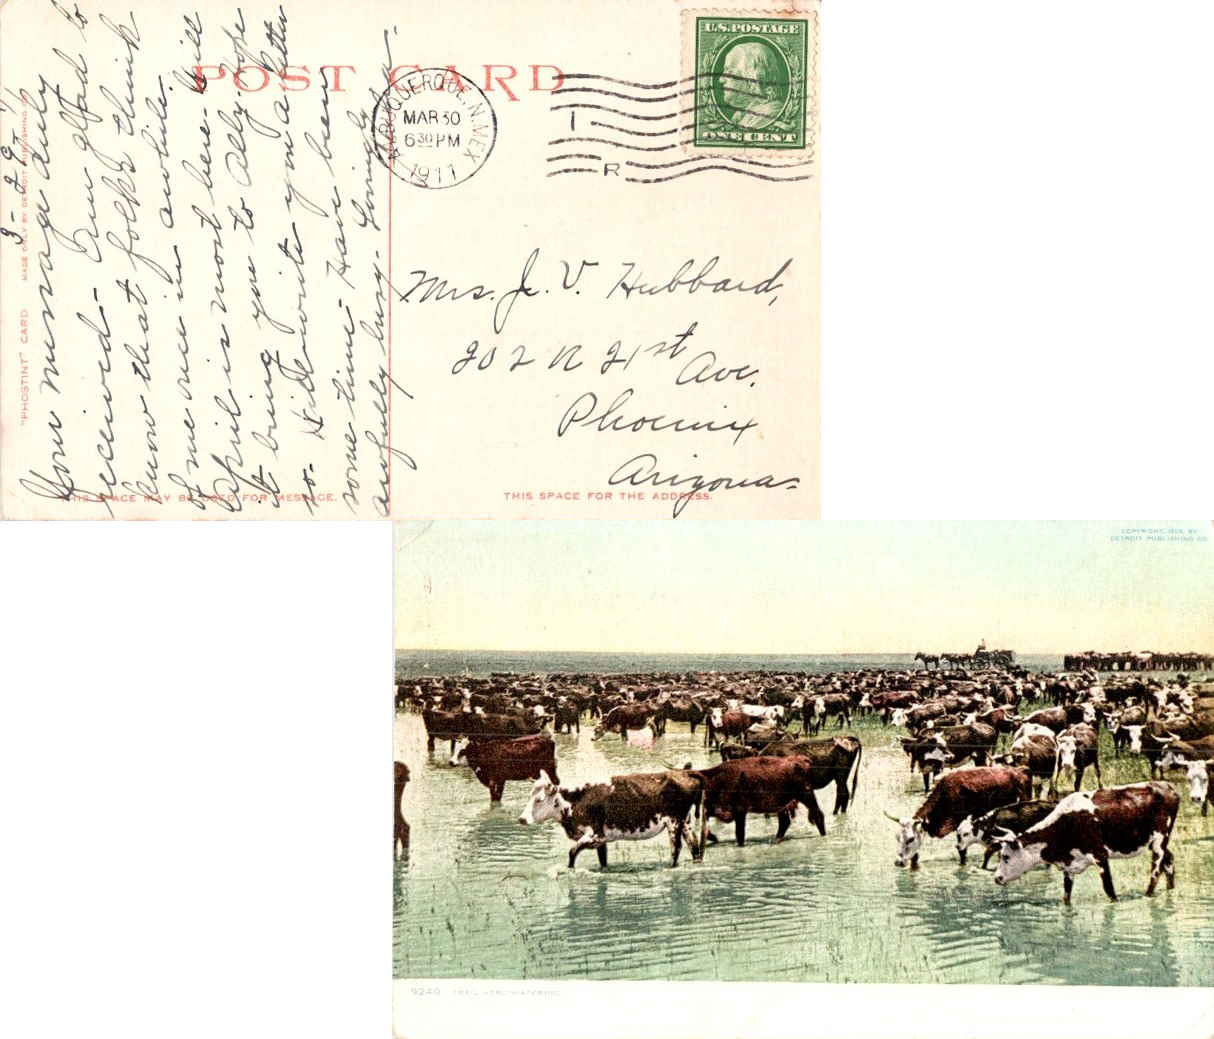 POST CARD
"PHOSTINT" CARD MADE ONLY BY DETROIT PUBLISHING CO.
3-29-11
Your message duly
received - Am glad to
know that folks think
of me once in awhile.
April is most here. Will
it bring you to Alb. hope
so. Will write you a letter
some time. Have been
awfully busy. Lovingly
THIS SPACE MAY BE USED FOR MESSAGE.
ALBUQUERQUE, N. MEX.
MAR 30
6 30 PM
1911
I
R
U.S. POSTAGE
ONE CENT
Mrs. J. V. Hubbard,
202 N 21st Ave.
Phoenix
Arizona
THIS SPACE FOR THE ADDRESS.
COPYRIGHT, BY
DETROIT PUBLISHING CO.
9249 TRAIL HERD WATERING